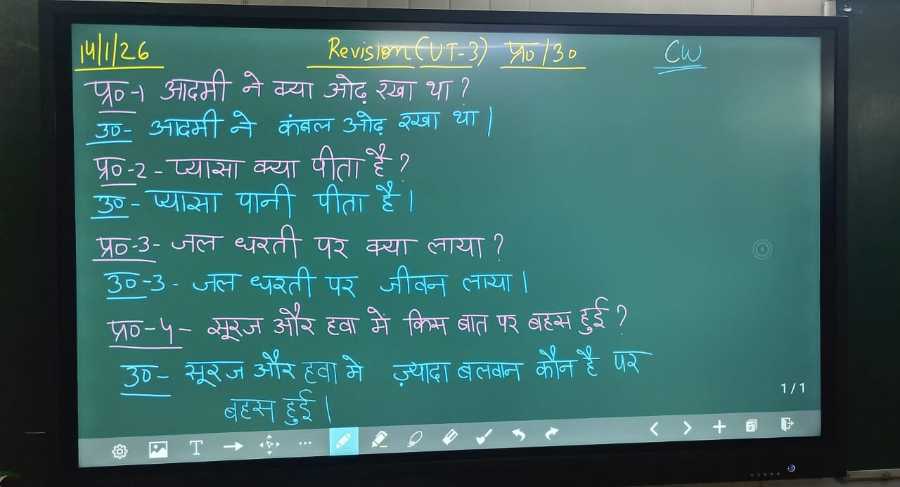 14/1/26 Revision (UT-3) प्र०/उ० CW
प्र०-1 आदमी ने क्या ओढ़ रखा था ?
उ०- आदमी ने कंबल ओढ़ रखा था |
प्र०-2 - प्यासा क्या पीता है ?
उ० - प्यासा पानी पीता है |
प्र०-3- जल धरती पर क्या लाया ?
उ०-3 - जल धरती पर जीवन लाया |
प्र०-4- सूरज और हवा में किस बात पर बहस हुई ?
उ०- सूरज और हवा मे ज़्यादा बलवान कौन है पर
बहस हुई |
1/1
T